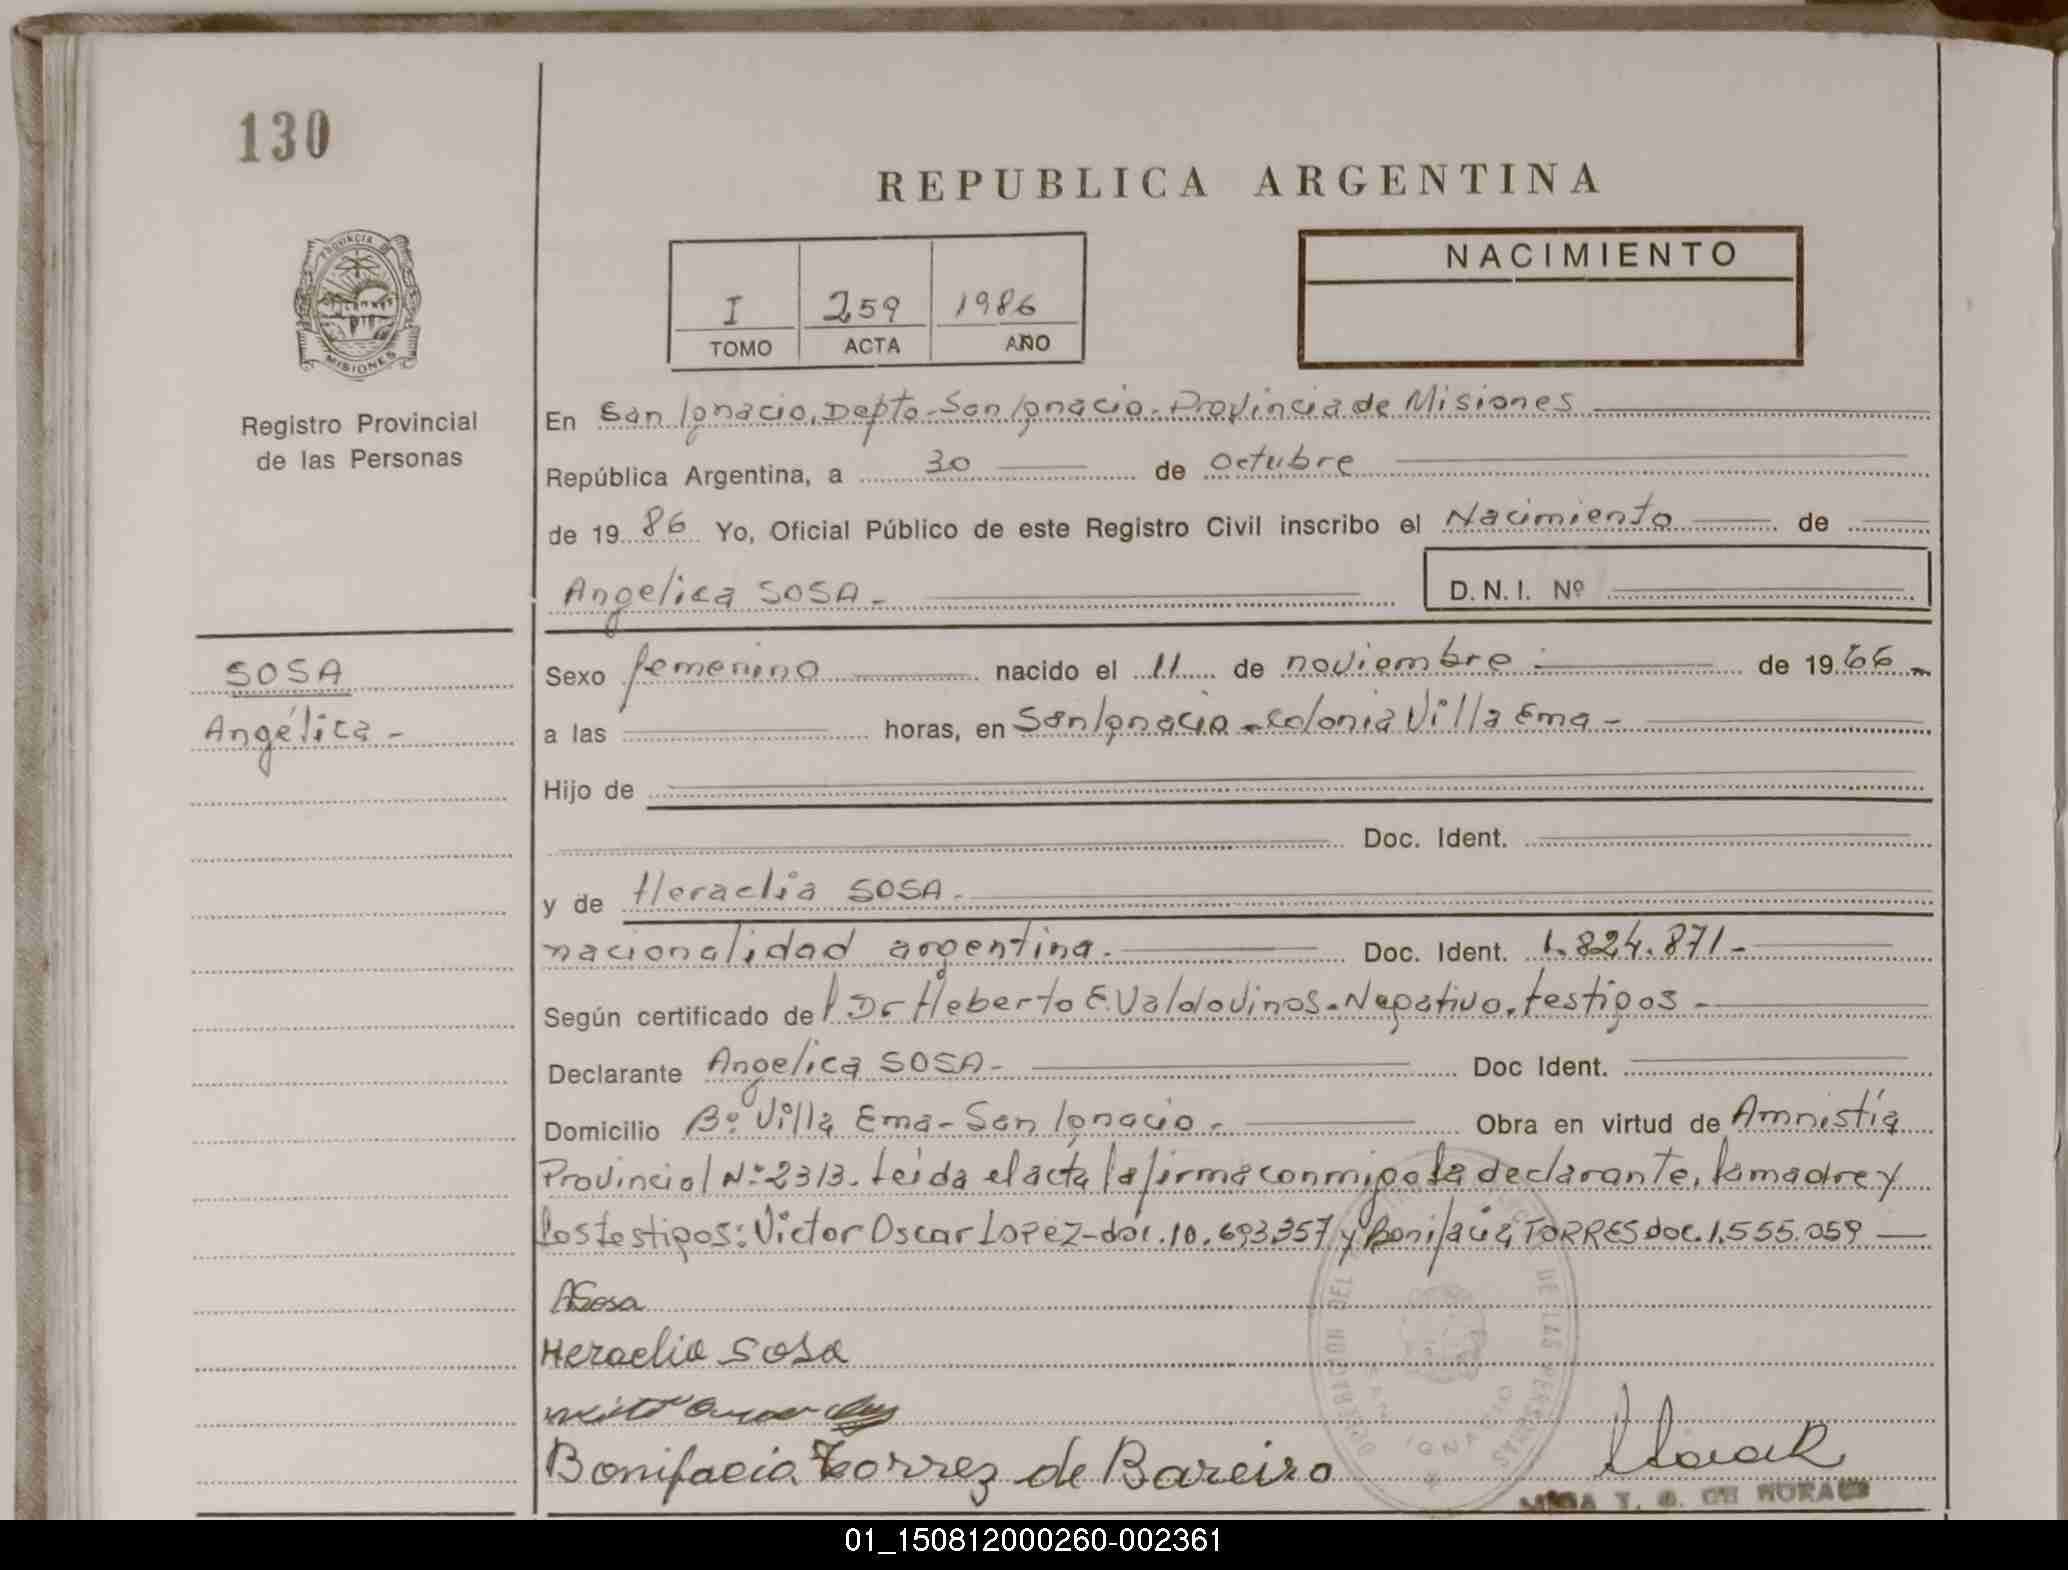 130
REPUBLICA ARGENTINA
PROVINCIA DE
MISIONES
Registro Provincial
de las Personas
I 259 1986
TOMO ACTA AÑO
NACIMIENTO
En San Ignacio, Depto-San Ignacio-Provincia de Misiones
República Argentina, a 30 de Octubre
de 19 86 Yo, Oficial Público de este Registro Civil inscribo el Nacimiento de
Angelica SOSA- D. N. I. Nº
SOSA
Angélica -
Sexo femenino nacido el 11 de noviembre de 19 66 -
a las horas, en San Ignacio - Colonia Villa Ema -
Hijo de
Doc. Ident.
y de Heraclia SOSA.
nacionalidad argentina. Doc. Ident. 1.824.871-
Según certificado del Dr Heberto E. Valdovinos-Negativo, testigos -
Declarante Angelica SOSA- Doc Ident.
Domicilio Bº Villa Ema-San Ignacio. Obra en virtud de Amnistía
Provincial Nº 2313. Leída el acta la firma conmigo la declarante, la madre y
los testigos: Victor Oscar Lopez-doc. 10.693.357 y Bonifacia TORRES doc. 1.555.059
ASosa
Heraclia Sosa
Bonifacia Torrez de Bareiro
DE LAS PERSONAS
SAN IGNACIO
01_150812000260-002361